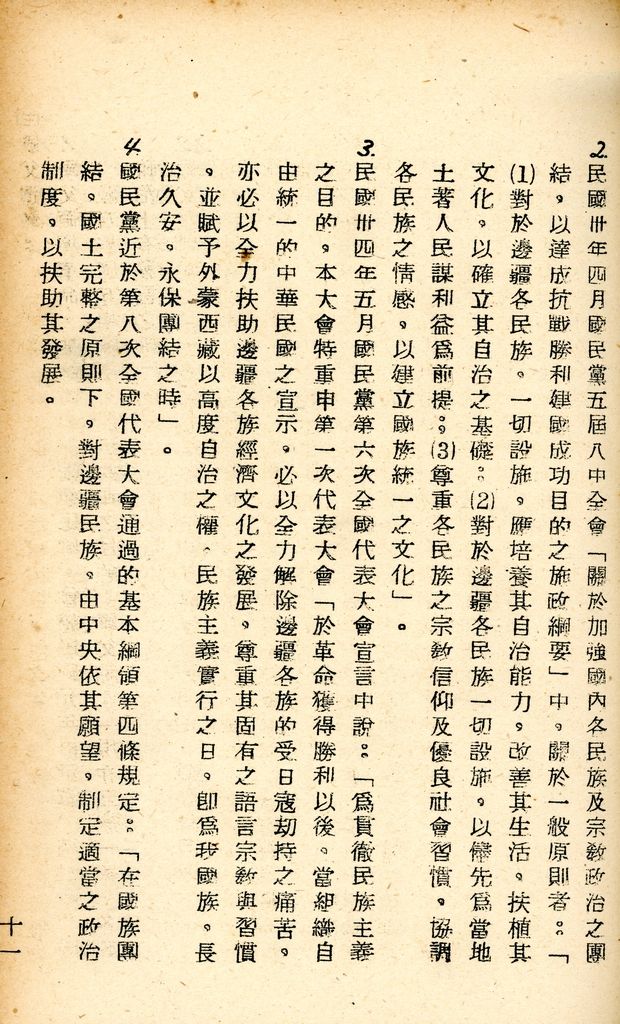 2.民國卅年四月國民黨五屆八中全會「關於加強國內各民族及宗教政治之團
結，以達成抗戰勝利建國成功目的之施政綱要」中，關於一般原則者：「
(1)對於邊疆各民族，一切設施，應培養其自治能力，改善其生活，扶植其
文化，以確立其自治之基礎；(2)對於邊疆各民族一切設施，以儘先為當地
土著人民謀利益為前提；(3)尊重各民族之宗教信仰及優良社會習慣，協調
各民族之情感，以建立國族統一之文化」。
3.民國卅四年五月國民黨第六次全國代表大會宣言中說：「為貫徹民族主義
之目的，本大會特重申第一次代表大會「於革命獲得勝利以後，當組織自
由統一的中華民國之宣示，必以全力解除邊疆各族的受日寇劫持之痛苦，
亦必以全力扶助邊疆各族經濟文化之發展，尊重其固有之語言宗教與習慣
，並賦予外蒙西藏以高度自治之權、民族主義實行之日，即為我國族，長
治久安，永保團結之時」。
4.國民黨近於第八次全國代表大會通過的基本綱領第四條規定：「在國族團
結，國土完整之原則下，對邊疆民族，由中央依其願望，制定適當之政治
制度，以扶助其發展。
十一